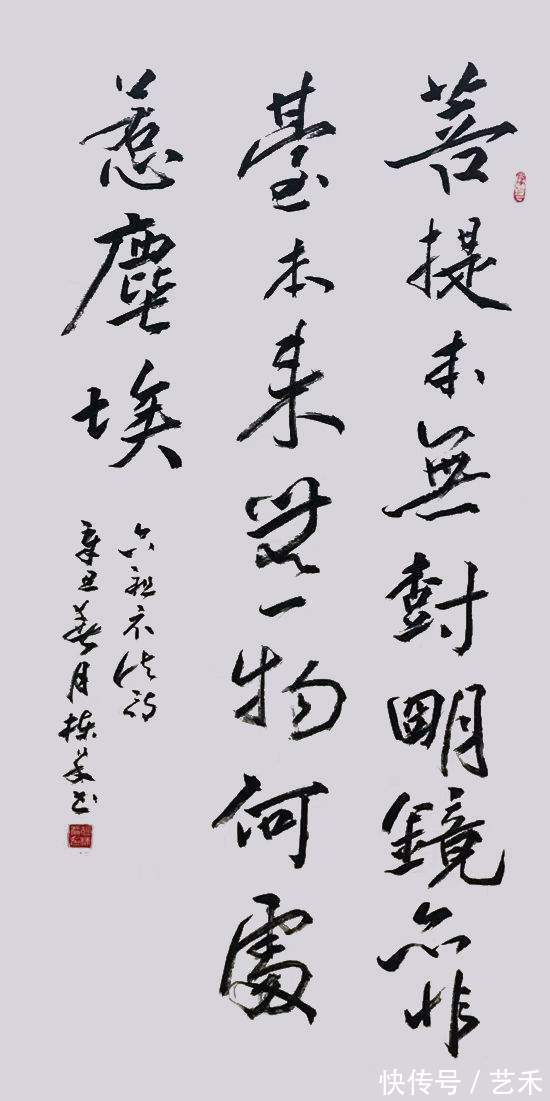 菩提本無樹明鏡亦非
臺本來無一物何處
惹塵埃
六祖示法詩
辛丑春月棟書
快传号 / 艺禾